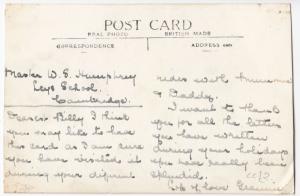 POST CARD
REAL PHOTO BRITISH MADE
CORRESPONDENCE ADDRESS ONLY
Master W. S. Humphrey
Leys School.
Cambridge.
Dearest Billy I think
you may like to have
this card as I am sure
you have visited it
during your different
rides with Mummie
& Daddy.
I want to thank
you for all the letters
you have written
during your holidays
you have really been
splendid.
Lots of love Grannie